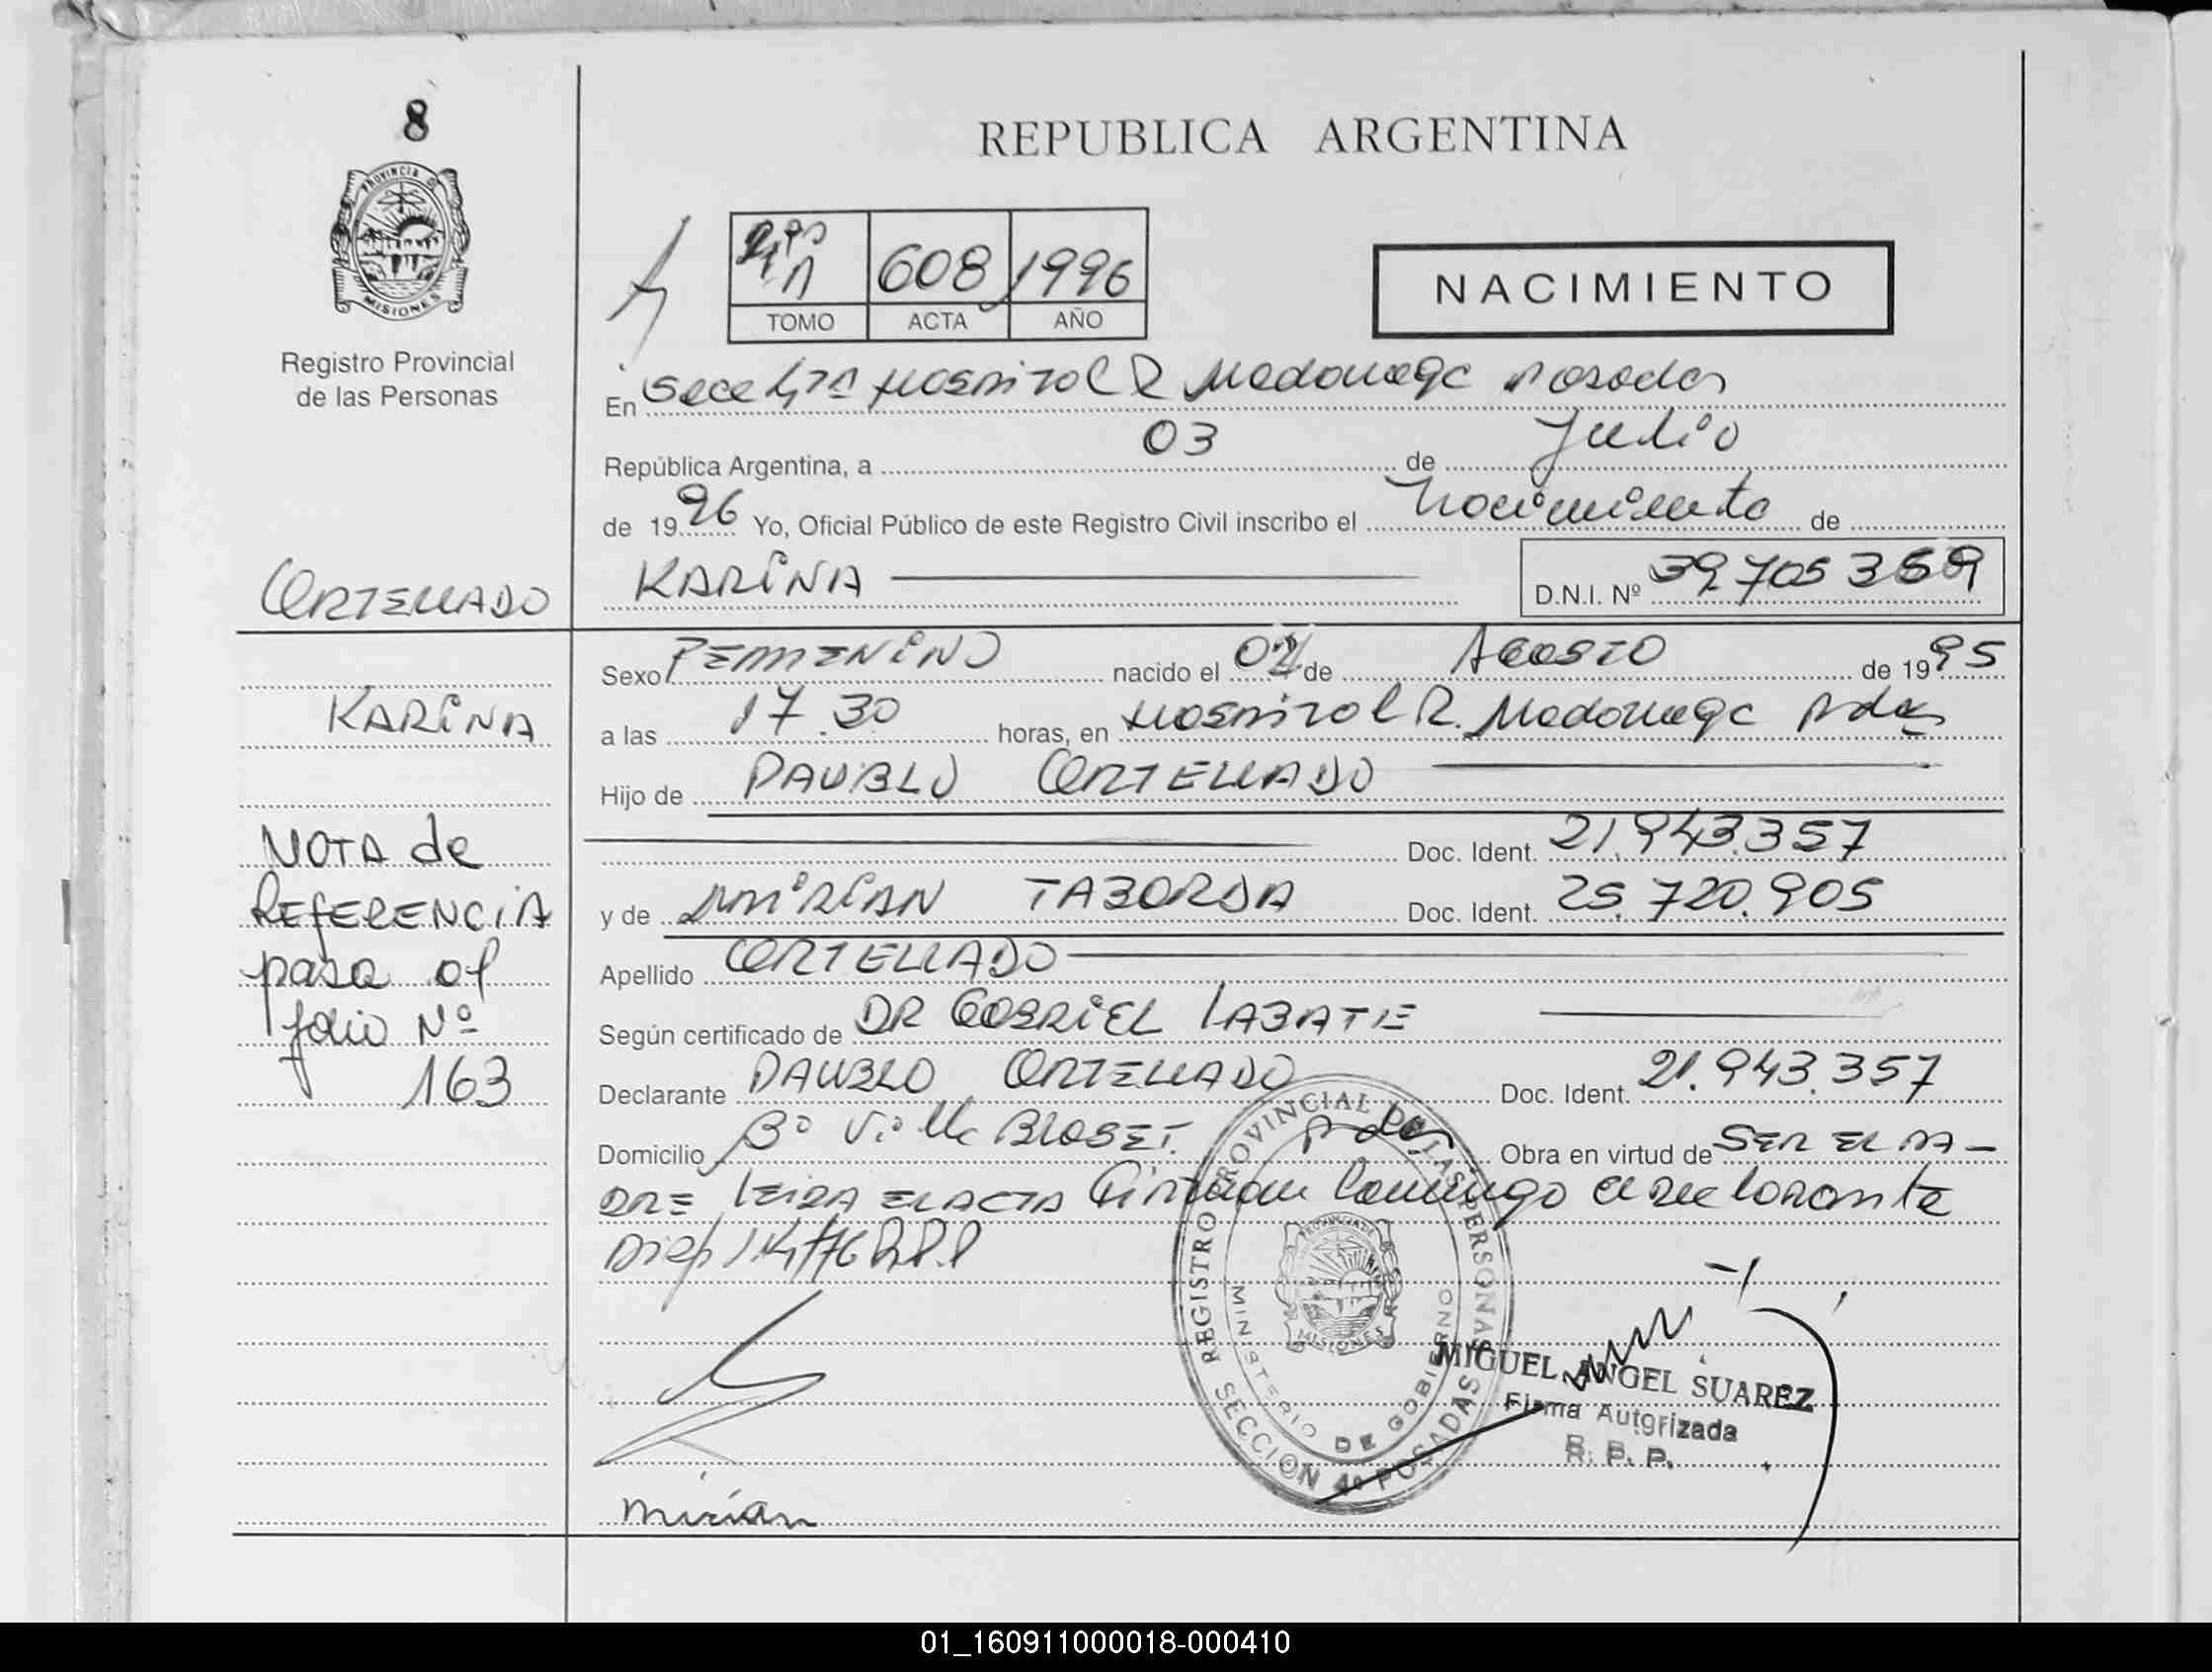 8
REPUBLICA ARGENTINA
PROVINCIA DE
MISIONES
Registro Provincial
de las Personas
608 1996
TOMO ACTA AÑO
NACIMIENTO
En Secc 4ta Hospital R Madariaga Posadas
República Argentina, a 03 de Julio
de 1996 Yo, Oficial Público de este Registro Civil inscribo el Nacimiento de
KARINA D.N.I. Nº 39705369
ORTELLADO
Sexo FEMENINO nacido el 02 de AGOSTO de 1995
KARINA
a las 17.30 horas, en Hospital R. Madariaga Pdas
Hijo de PAUBLO ORTELLADO
NOTA de
Doc. Ident. 21.943.357
REFERENCIA
y de MIRIAN TABORDA Doc. Ident. 25.720.905
pasa al
Apellido ORTELLADO
folio Nº
Según certificado de DR GABRIEL LABATE
163
Declarante PAUBLO ORTELLADO Doc. Ident. 21.943.357
Domicilio Bº Villa BLOSET. Pdas Obra en virtud de SER EL PA-
DRE LEIDA EL ACTA firman conmigo el declarante
REGISTRO PROVINCIAL DE LAS PERSONAS
MINISTERIO DE GOBIERNO
PROVINCIA DE
MISIONES
SECCION 4º POSADAS
MIGUEL ANGEL SUAREZ
Firma Autorizada
R. P. P.
Mirian
01_160911000018-000410